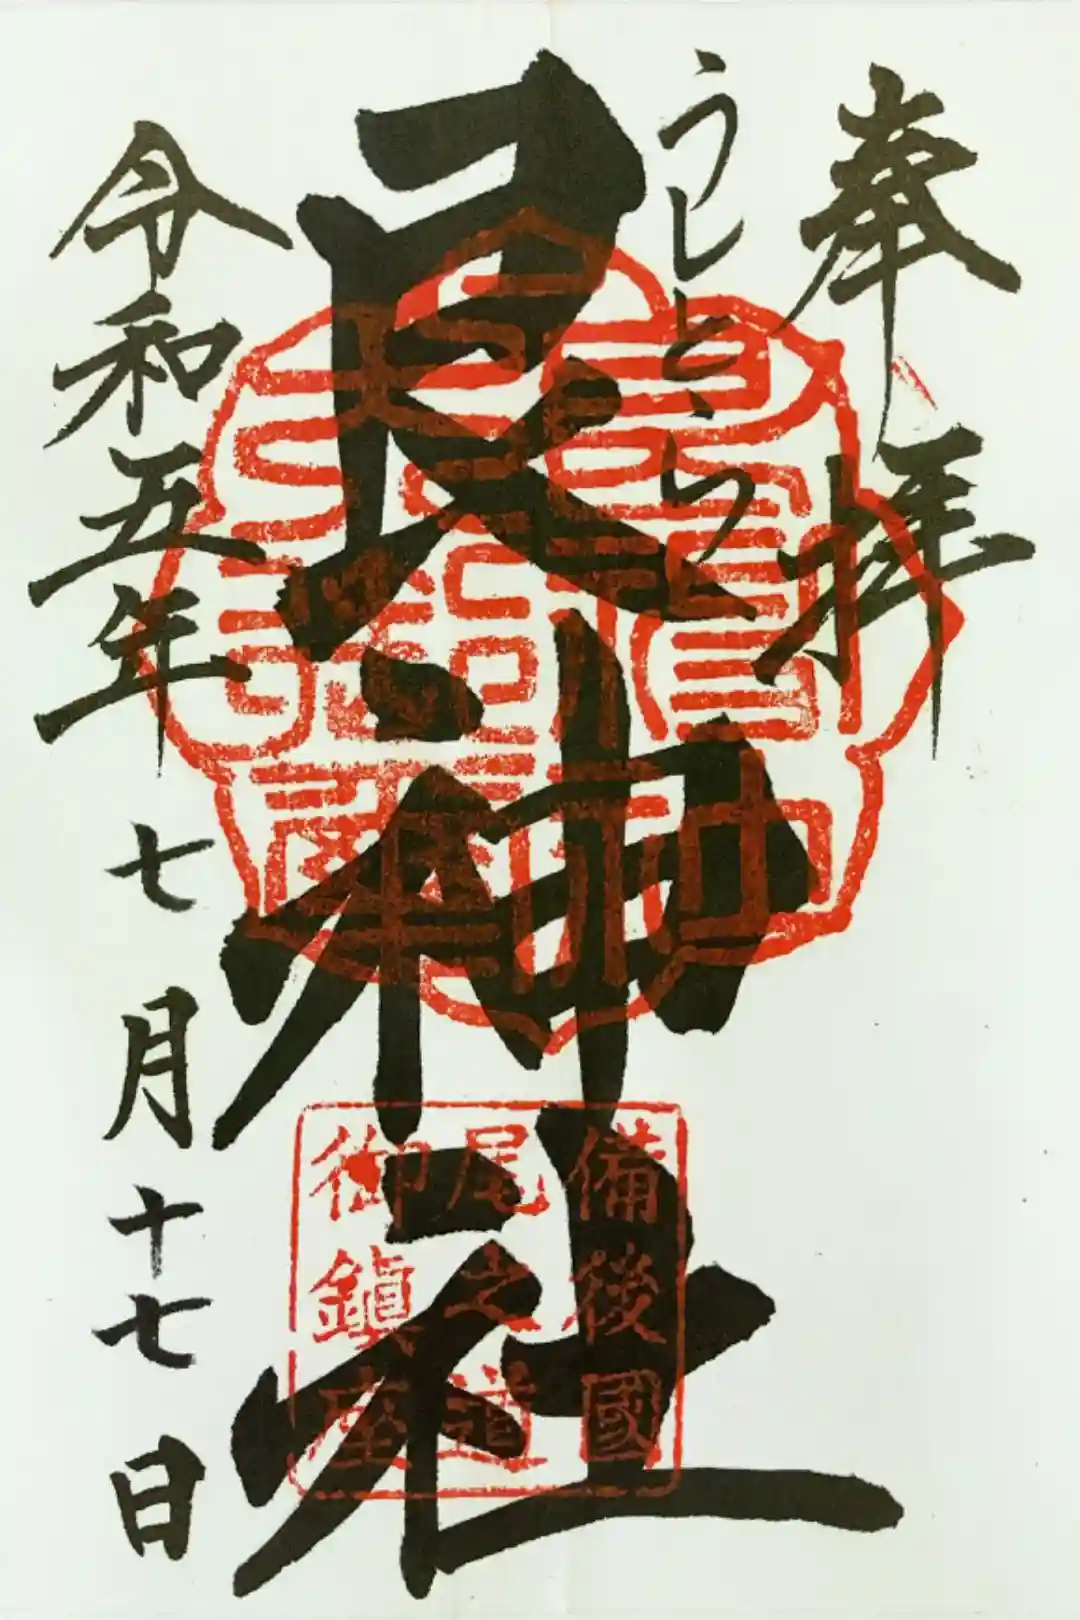 奉拝
うしとら
艮神社
備後國
尾之道
御鎮座
令和五年七月十七日